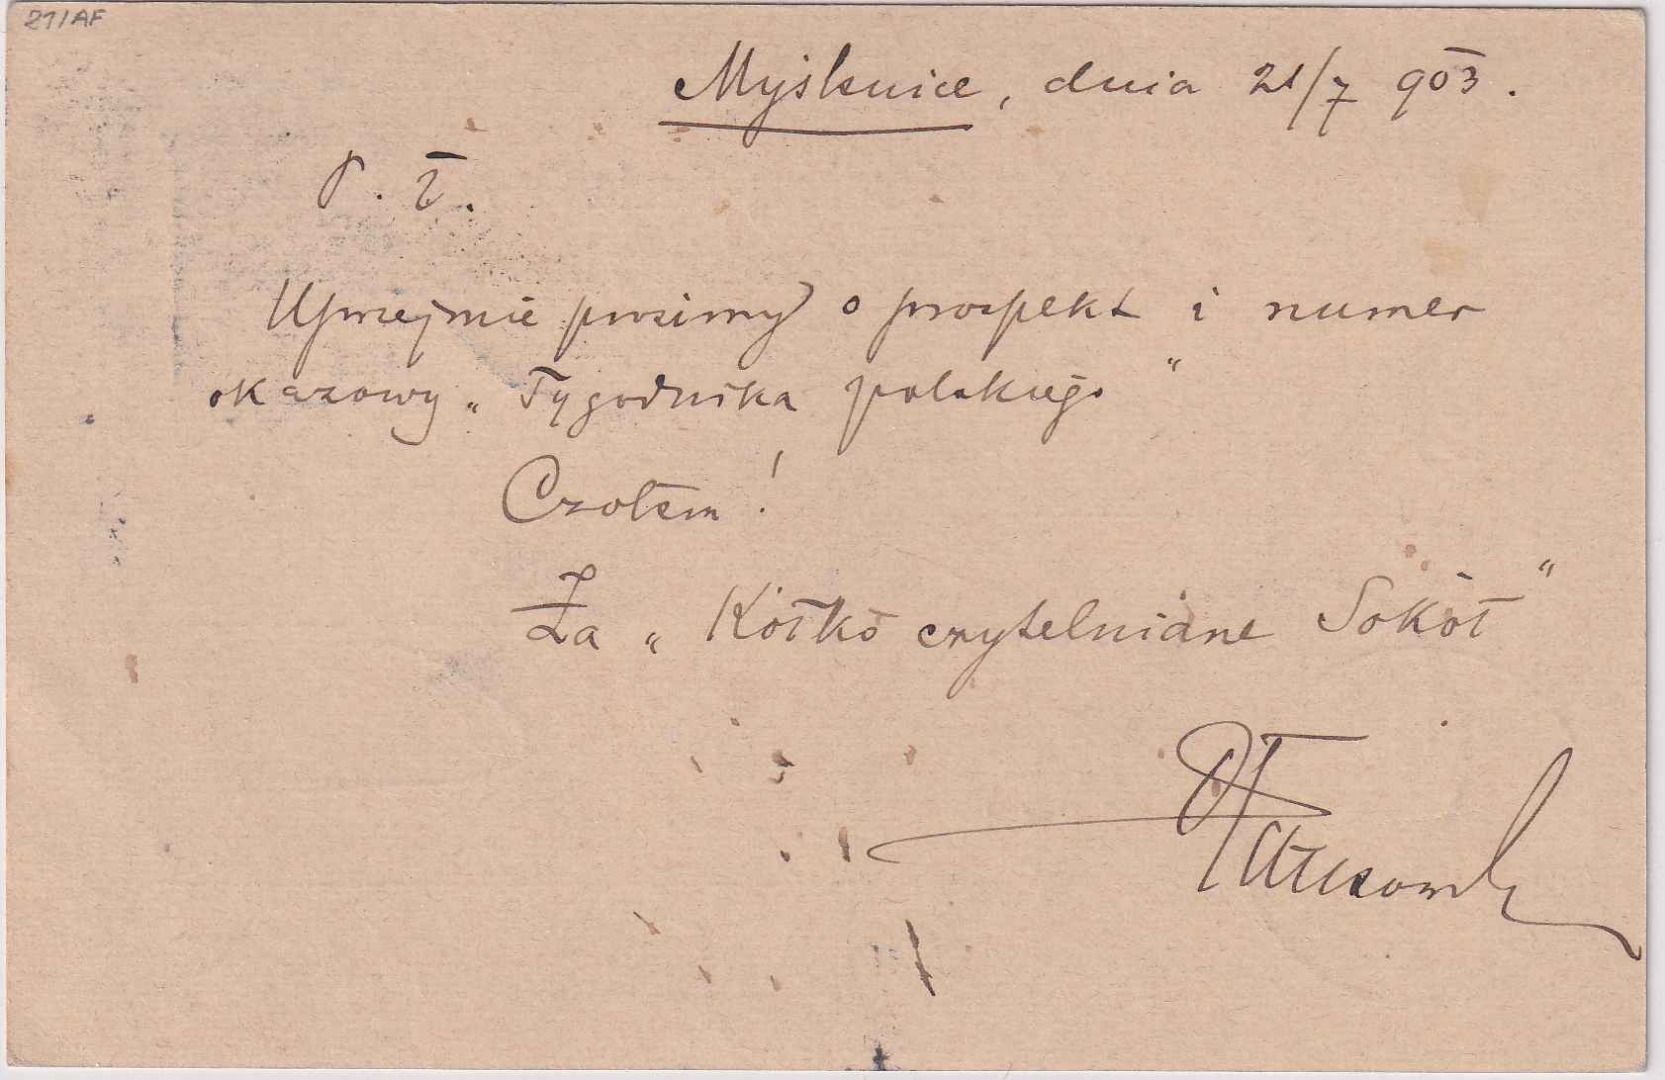 21/AF
Myślenice, dnia 21/7 903.
P. T.
Uprzejmie prosimy o prospekt i numer
okazowy „Tygodnika polskiego"
Czołem!
Za „Kółko czytelniane Sokół"